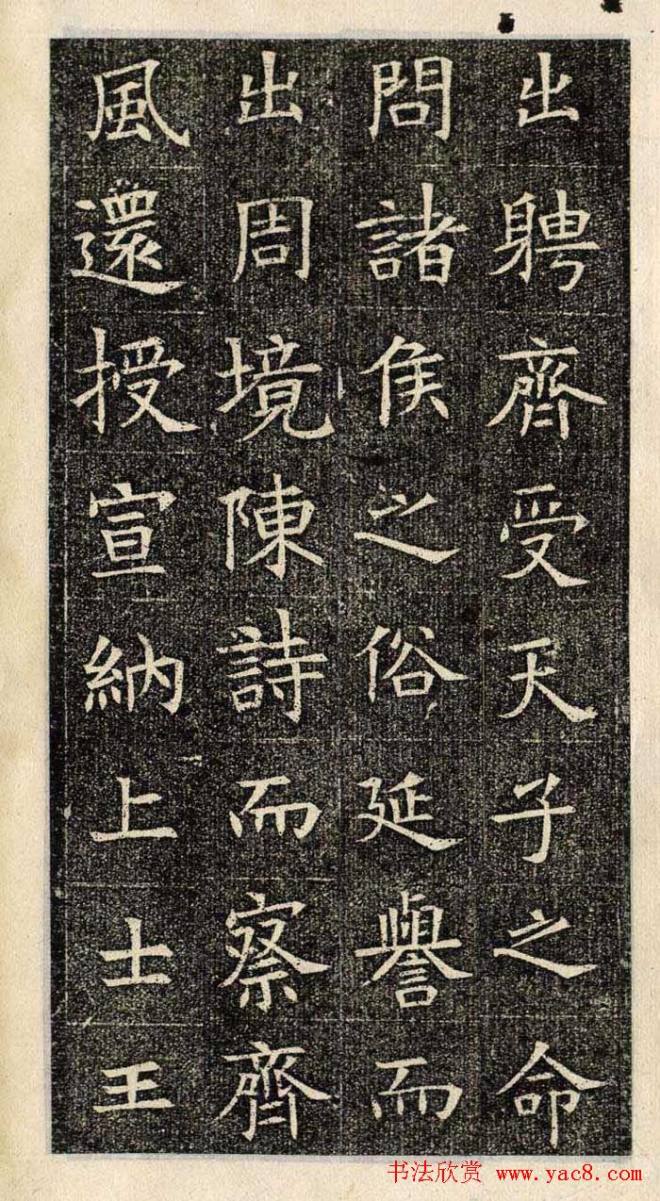 出聘齊受天子之命
問諸侯之俗延譽而
出周境陳詩而察齊
風還授宣納上士王
书法欣赏 www.yac8.com